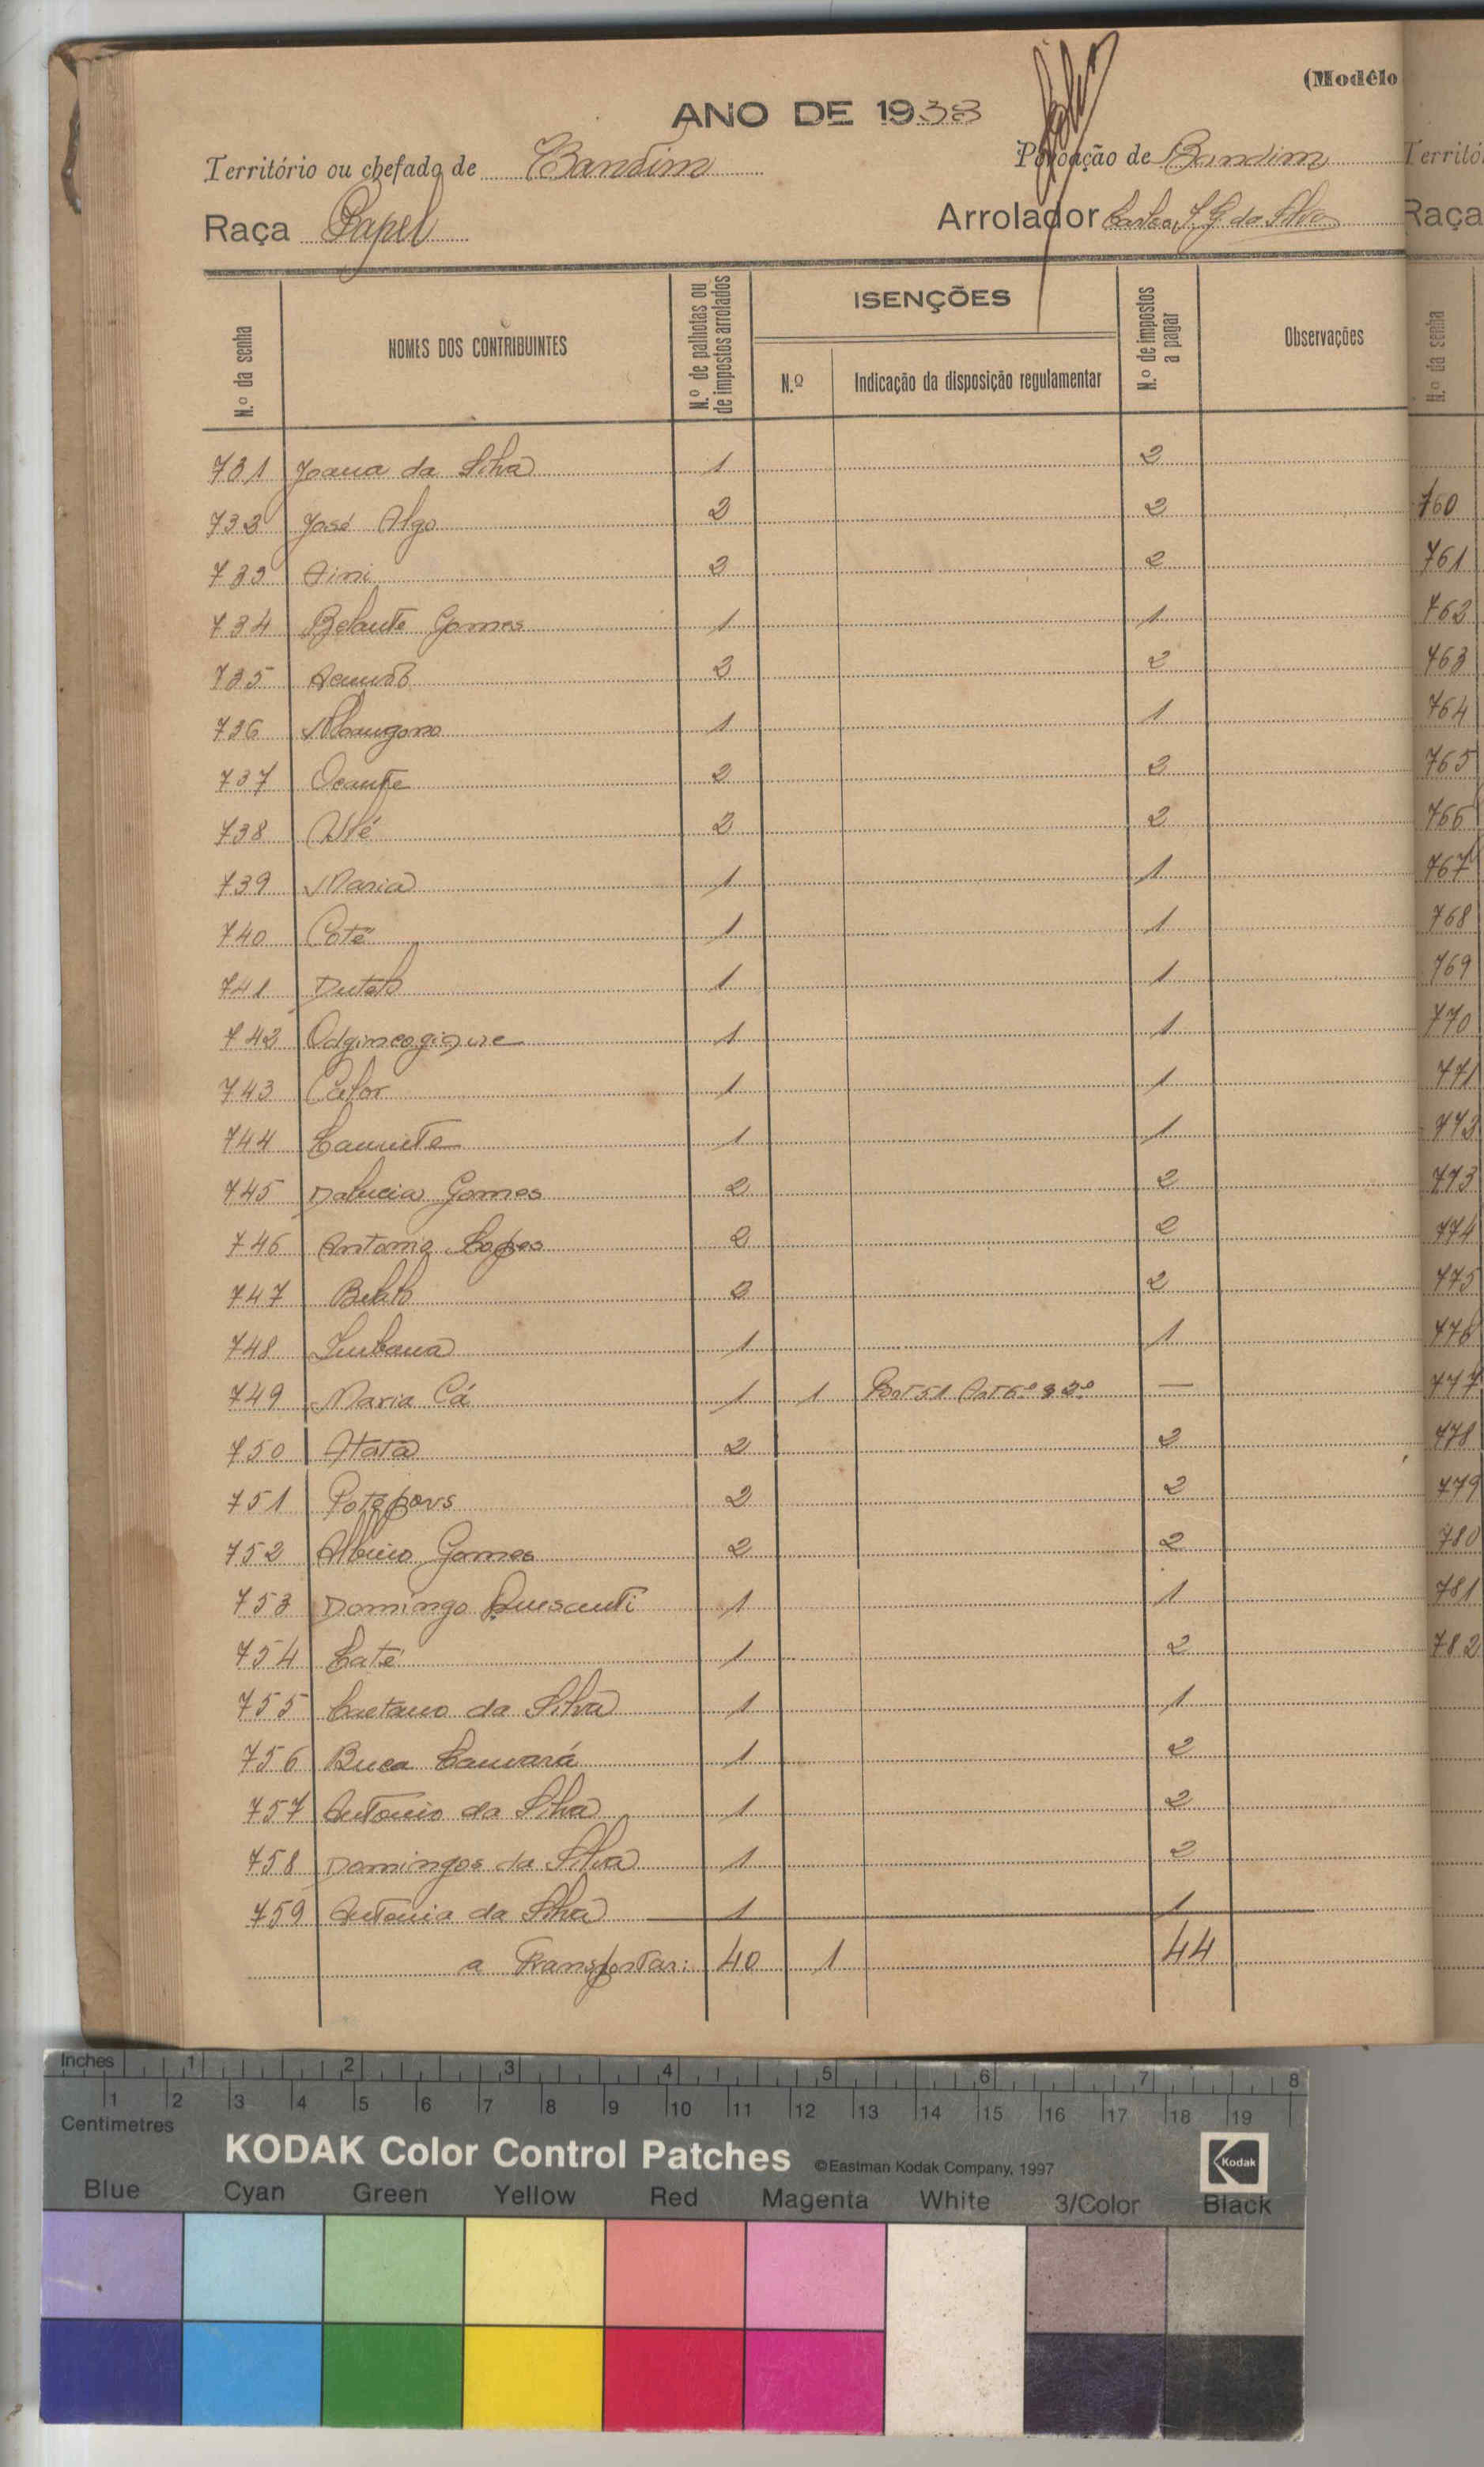 (Modêlo
ANO DE 1938
Território ou chefado de Bandim Povoação de Bandim
Raça Papel Arrolador Carlos S. G. da Silva
N.º da senha NOMES DOS CONTRIBUINTES N.º de palhotas ou de impostos arrolados ISENÇÕES N.º Indicação da disposição regulamentar N.º de impostos a pagar Observações
731 Joana da Silva 1 2
732 José Algo 2 2
733 2 2
734 Gomes 1 1
735 2 2
736 1 1
737 Ocante 2 2
738 Uté 2 2
739 Maria 1 1
740 Coté 1 1
741 1 1
742 1 1
743 1 1
744 1 1
745 Gomes 2 2
746 Antonio Lopes 2 2
747 2 2
748 1 1
749 Maria Cá 1 1 Port 51 Art 6º § 2º —
750 Atata 2 2
751 2 2
752 Gomes 2 2
753 Domingo 1 1
754 Caté 1 2
755 Caetano da Silva 1 1
756 Buca Camará 1 2
757 Antonio da Silva 1 2
758 Domingos da Silva 1 2
759 Antonia da Silva 1 1
a Transportar: 40 1 44
Territó
Raça
N.º da senha
760
761
762
763
764
765
766
767
768
769
770
771
772
773
774
775
776
777
778
779
780
781
782
Inches 1 2 3 4 5 6 7 8
1 2 3 4 5 6 7 8 9 10 11 12 13 14 15 16 17 18 19
Centimetres
KODAK Color Control Patches ©Eastman Kodak Company, 1997 Kodak
Blue Cyan Green Yellow Red Magenta White 3/Color Black